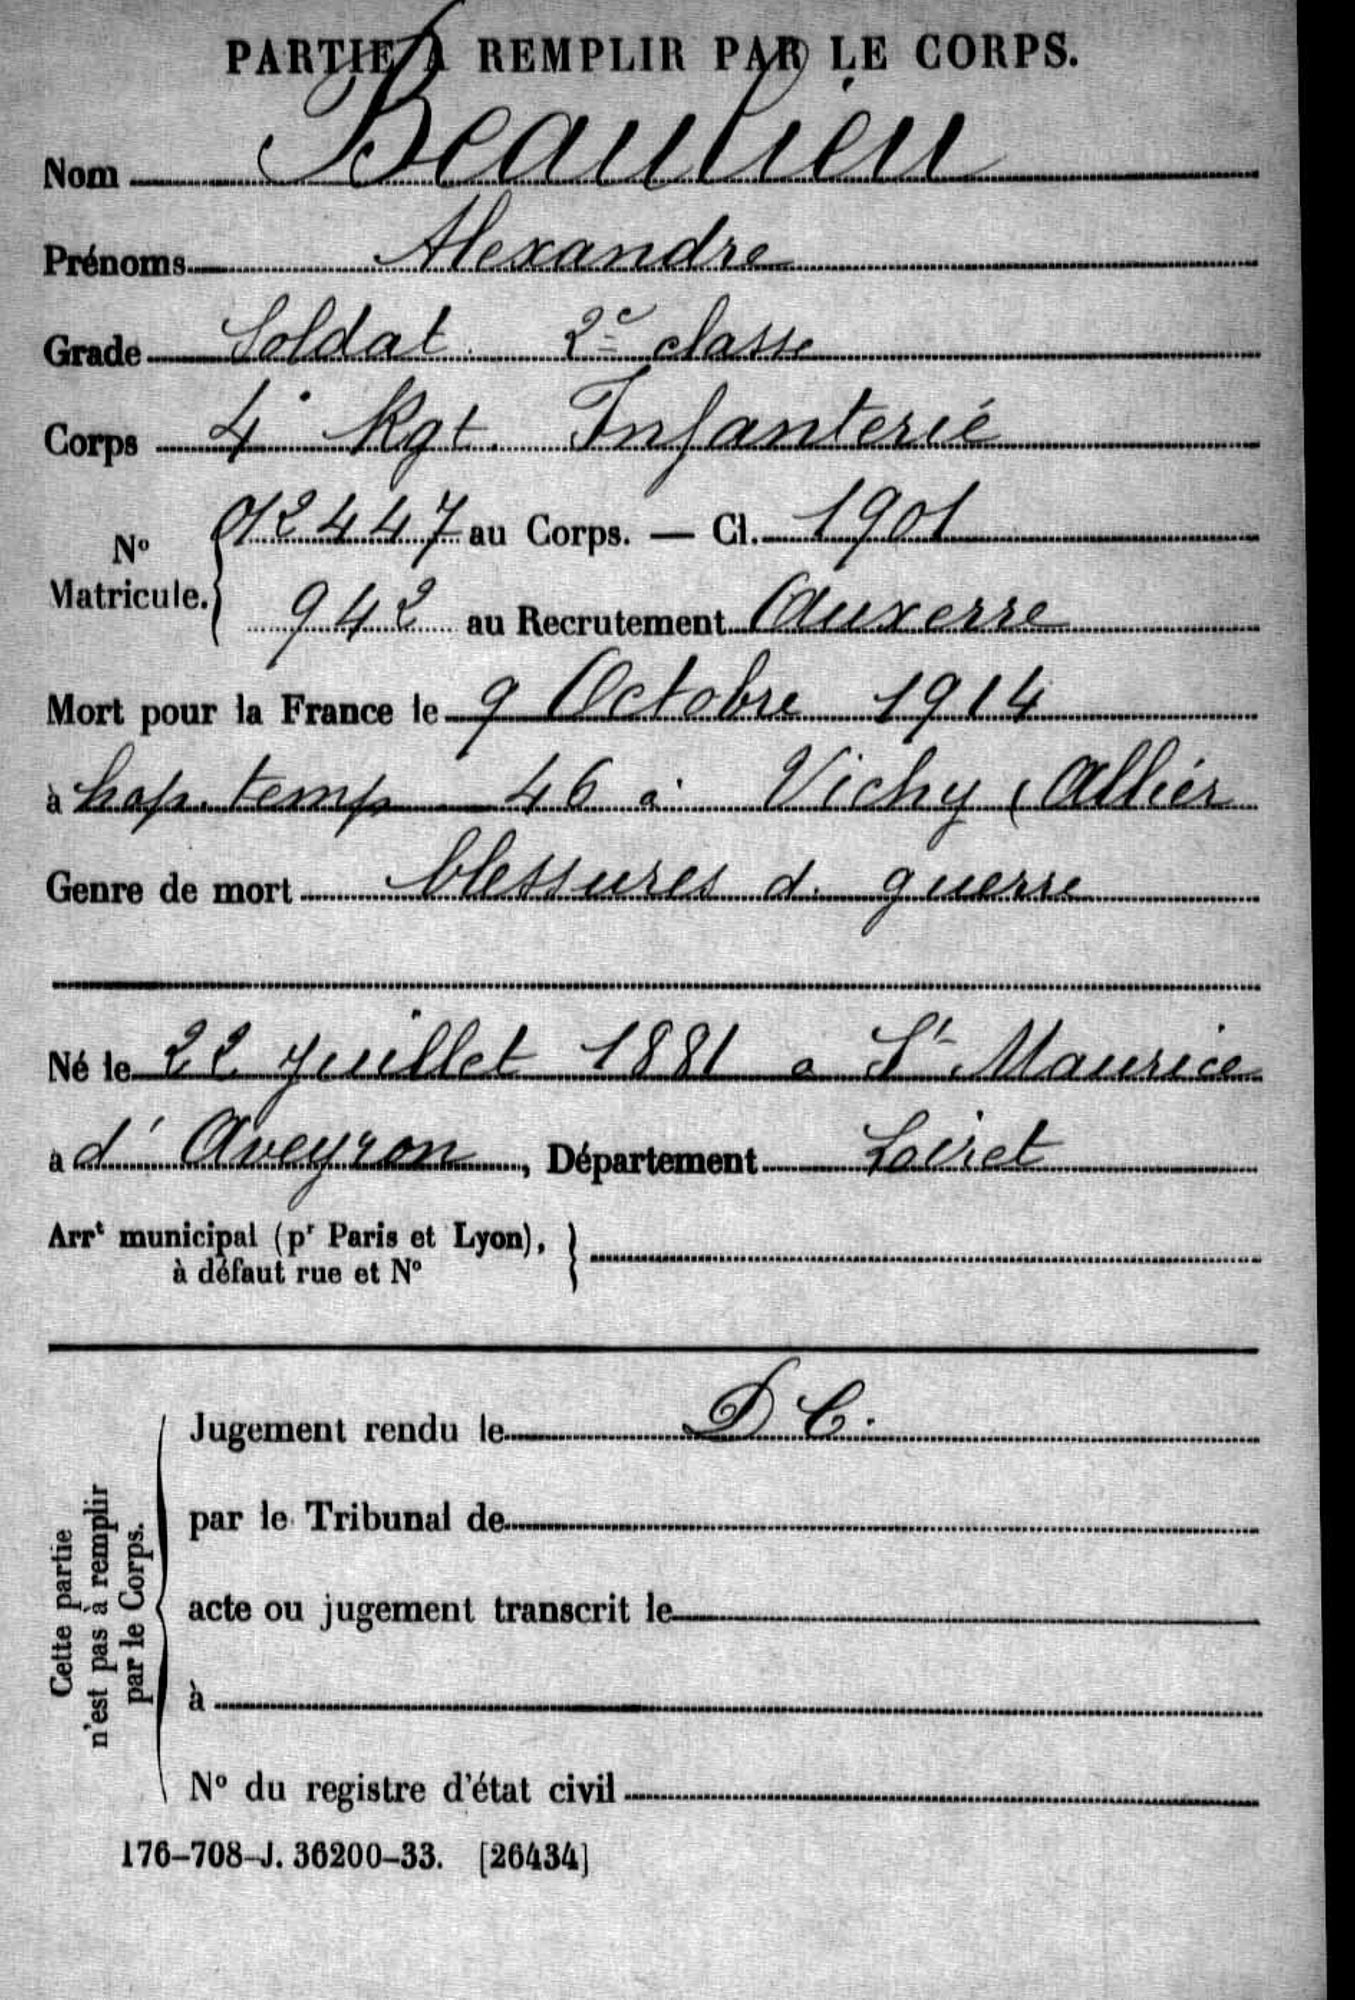 PARTIE A REMPLIR PAR LE CORPS.
Nom Beaulieu
Prénoms Alexandre
Grade Soldat 2e classe
Corps 4e Rgt. Infanterie
No Matricule. { 012447 au Corps. — Cl. 1901
942 au Recrutement Auxerre
Mort pour la France le 9 Octobre 1914
à hop. temp 46 à Vichy (Allier
Genre de mort blessures d. guerre
Né le 22 Juillet 1881 a St Maurice
à d'Aveyron, Département Loiret
Arrt municipal (pr Paris et Lyon), }
à défaut rue et No
Cette partie
n'est pas à remplir
par le Corps.
Jugement rendu le D C.
par le Tribunal de
acte ou jugement transcrit le
à
No du registre d'état civil
176-708-J. 36200-33. [26434]